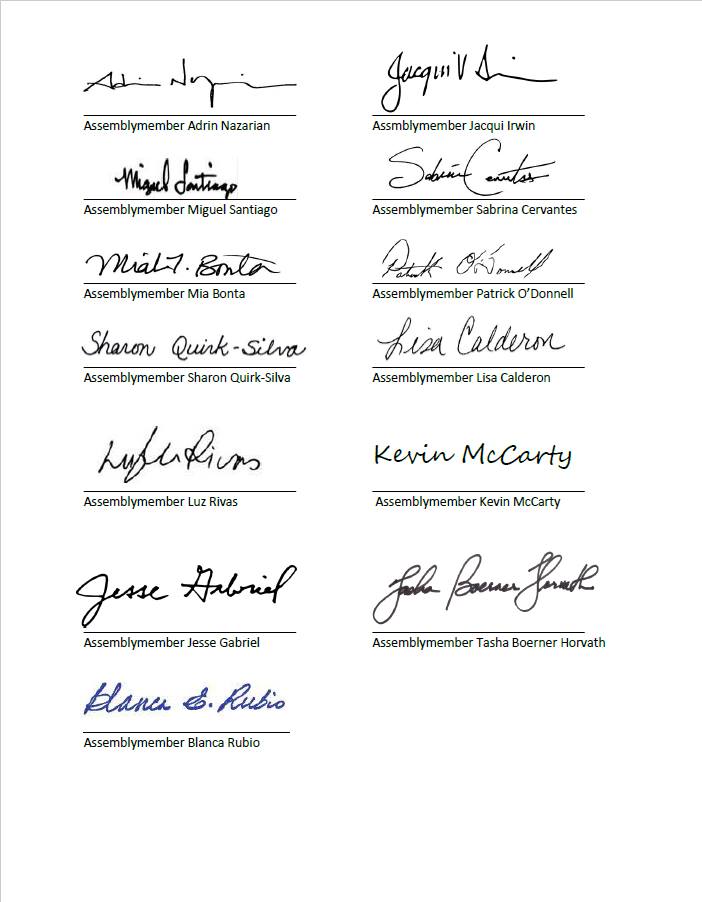 Adrin Nazarian Jacqui V Irwin
Assemblymember Adrin Nazarian Assmblymember Jacqui Irwin
Miguel Santiago Sabrina Cervantes
Assemblymember Miguel Santiago Assemblymember Sabrina Cervantes
Mia Bonta Patrick O'Donnell
Assemblymember Mia Bonta Assemblymember Patrick O'Donnell
Sharon Quirk-Silva Lisa Calderon
Assemblymember Sharon Quirk-Silva Assemblymember Lisa Calderon
Luz Rivas Kevin McCarty
Assemblymember Luz Rivas Assemblymember Kevin McCarty
Jesse Gabriel Tasha Boerner Horvath
Assemblymember Jesse Gabriel Assemblymember Tasha Boerner Horvath
Blanca E. Rubio
Assemblymember Blanca Rubio